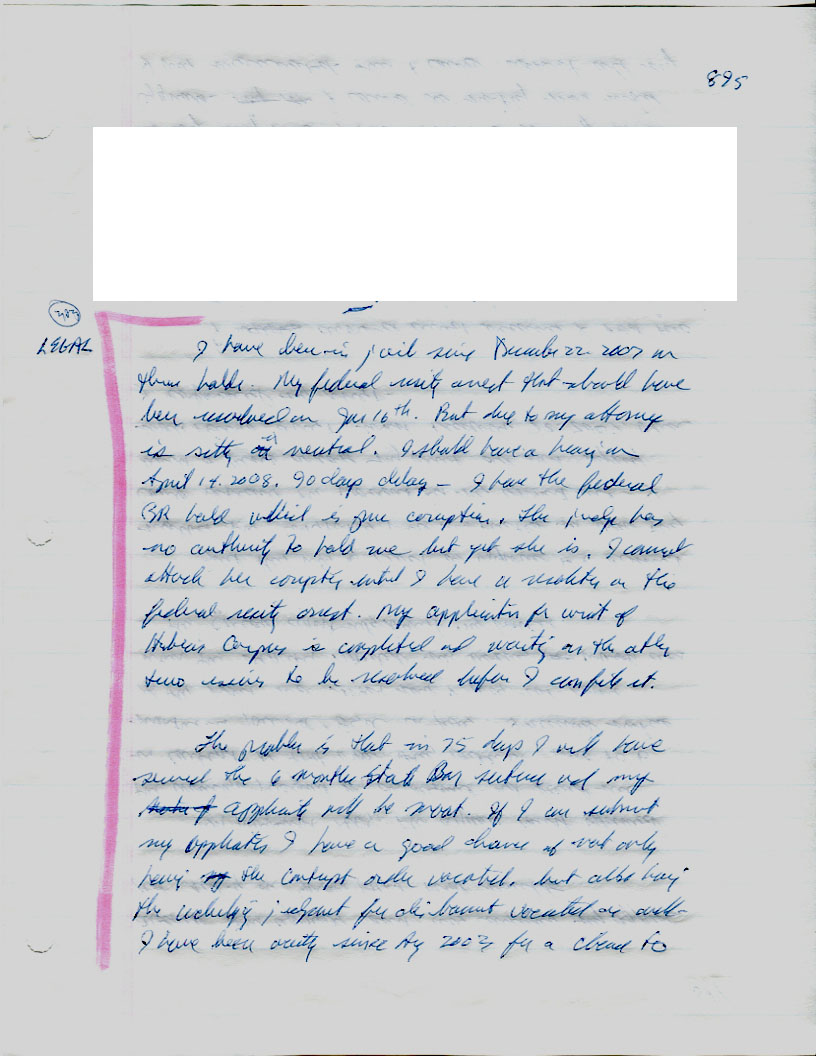 895
383
LEGAL
I have been in jail since December 22 2007 on
three holds. My federal arrest that should have
been resolved on Jan 16th. But due to my attorney
is sitting in neutral. I should have a hearing on
April 14. 2008. 90 days delay - I have the federal
BR hold which is pure corruption. The judge has
no authority to hold me but yet she is. I cannot
attack her until I have a on the
federal arrest. My application for writ of
Habeas Corpus is completed and waiting on the other
two issues to be resolved before I can file it.
The problem is that in 75 days I will have
served the 6 months State Bar and my
application will be moot. If I can submit
my application I have a good chance of not only
having the contempt order vacated. but also having
the judgment for disbarment vacated as well-
I have been waiting since 2003 for a chance to